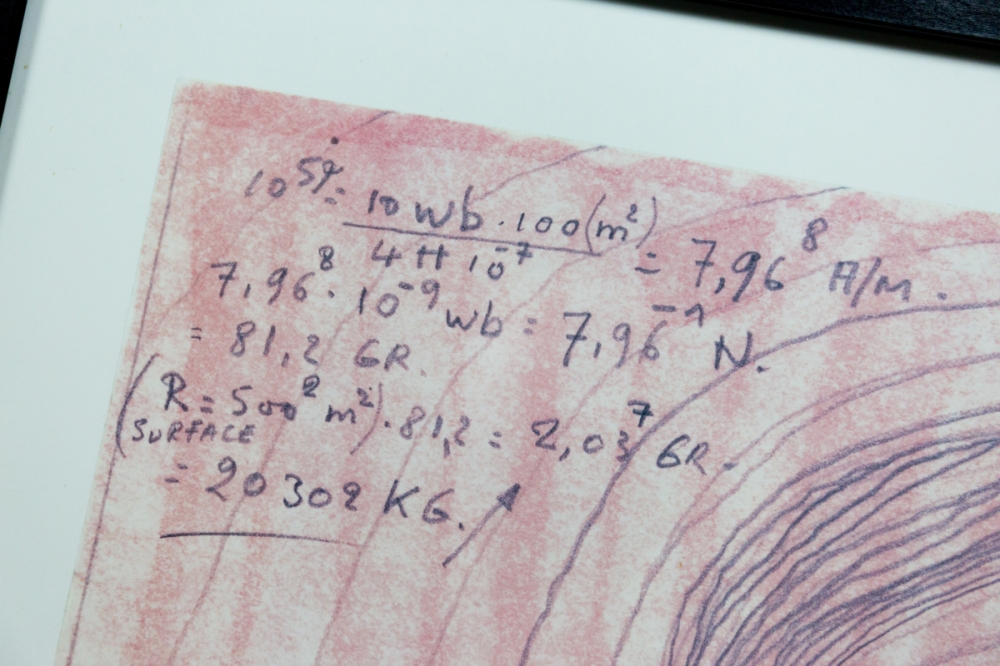 = 10 Wb . 100 (m²) / 4 π 10⁻⁷ = 7,96⁸ A/M.
7,96⁸ . 10⁻⁹ Wb = 7,96⁻¹ N.
= 81,2 GR.
(R = 500² m²) . 81,2 = 2,03⁷ GR.
SURFACE
= 20302 KG.